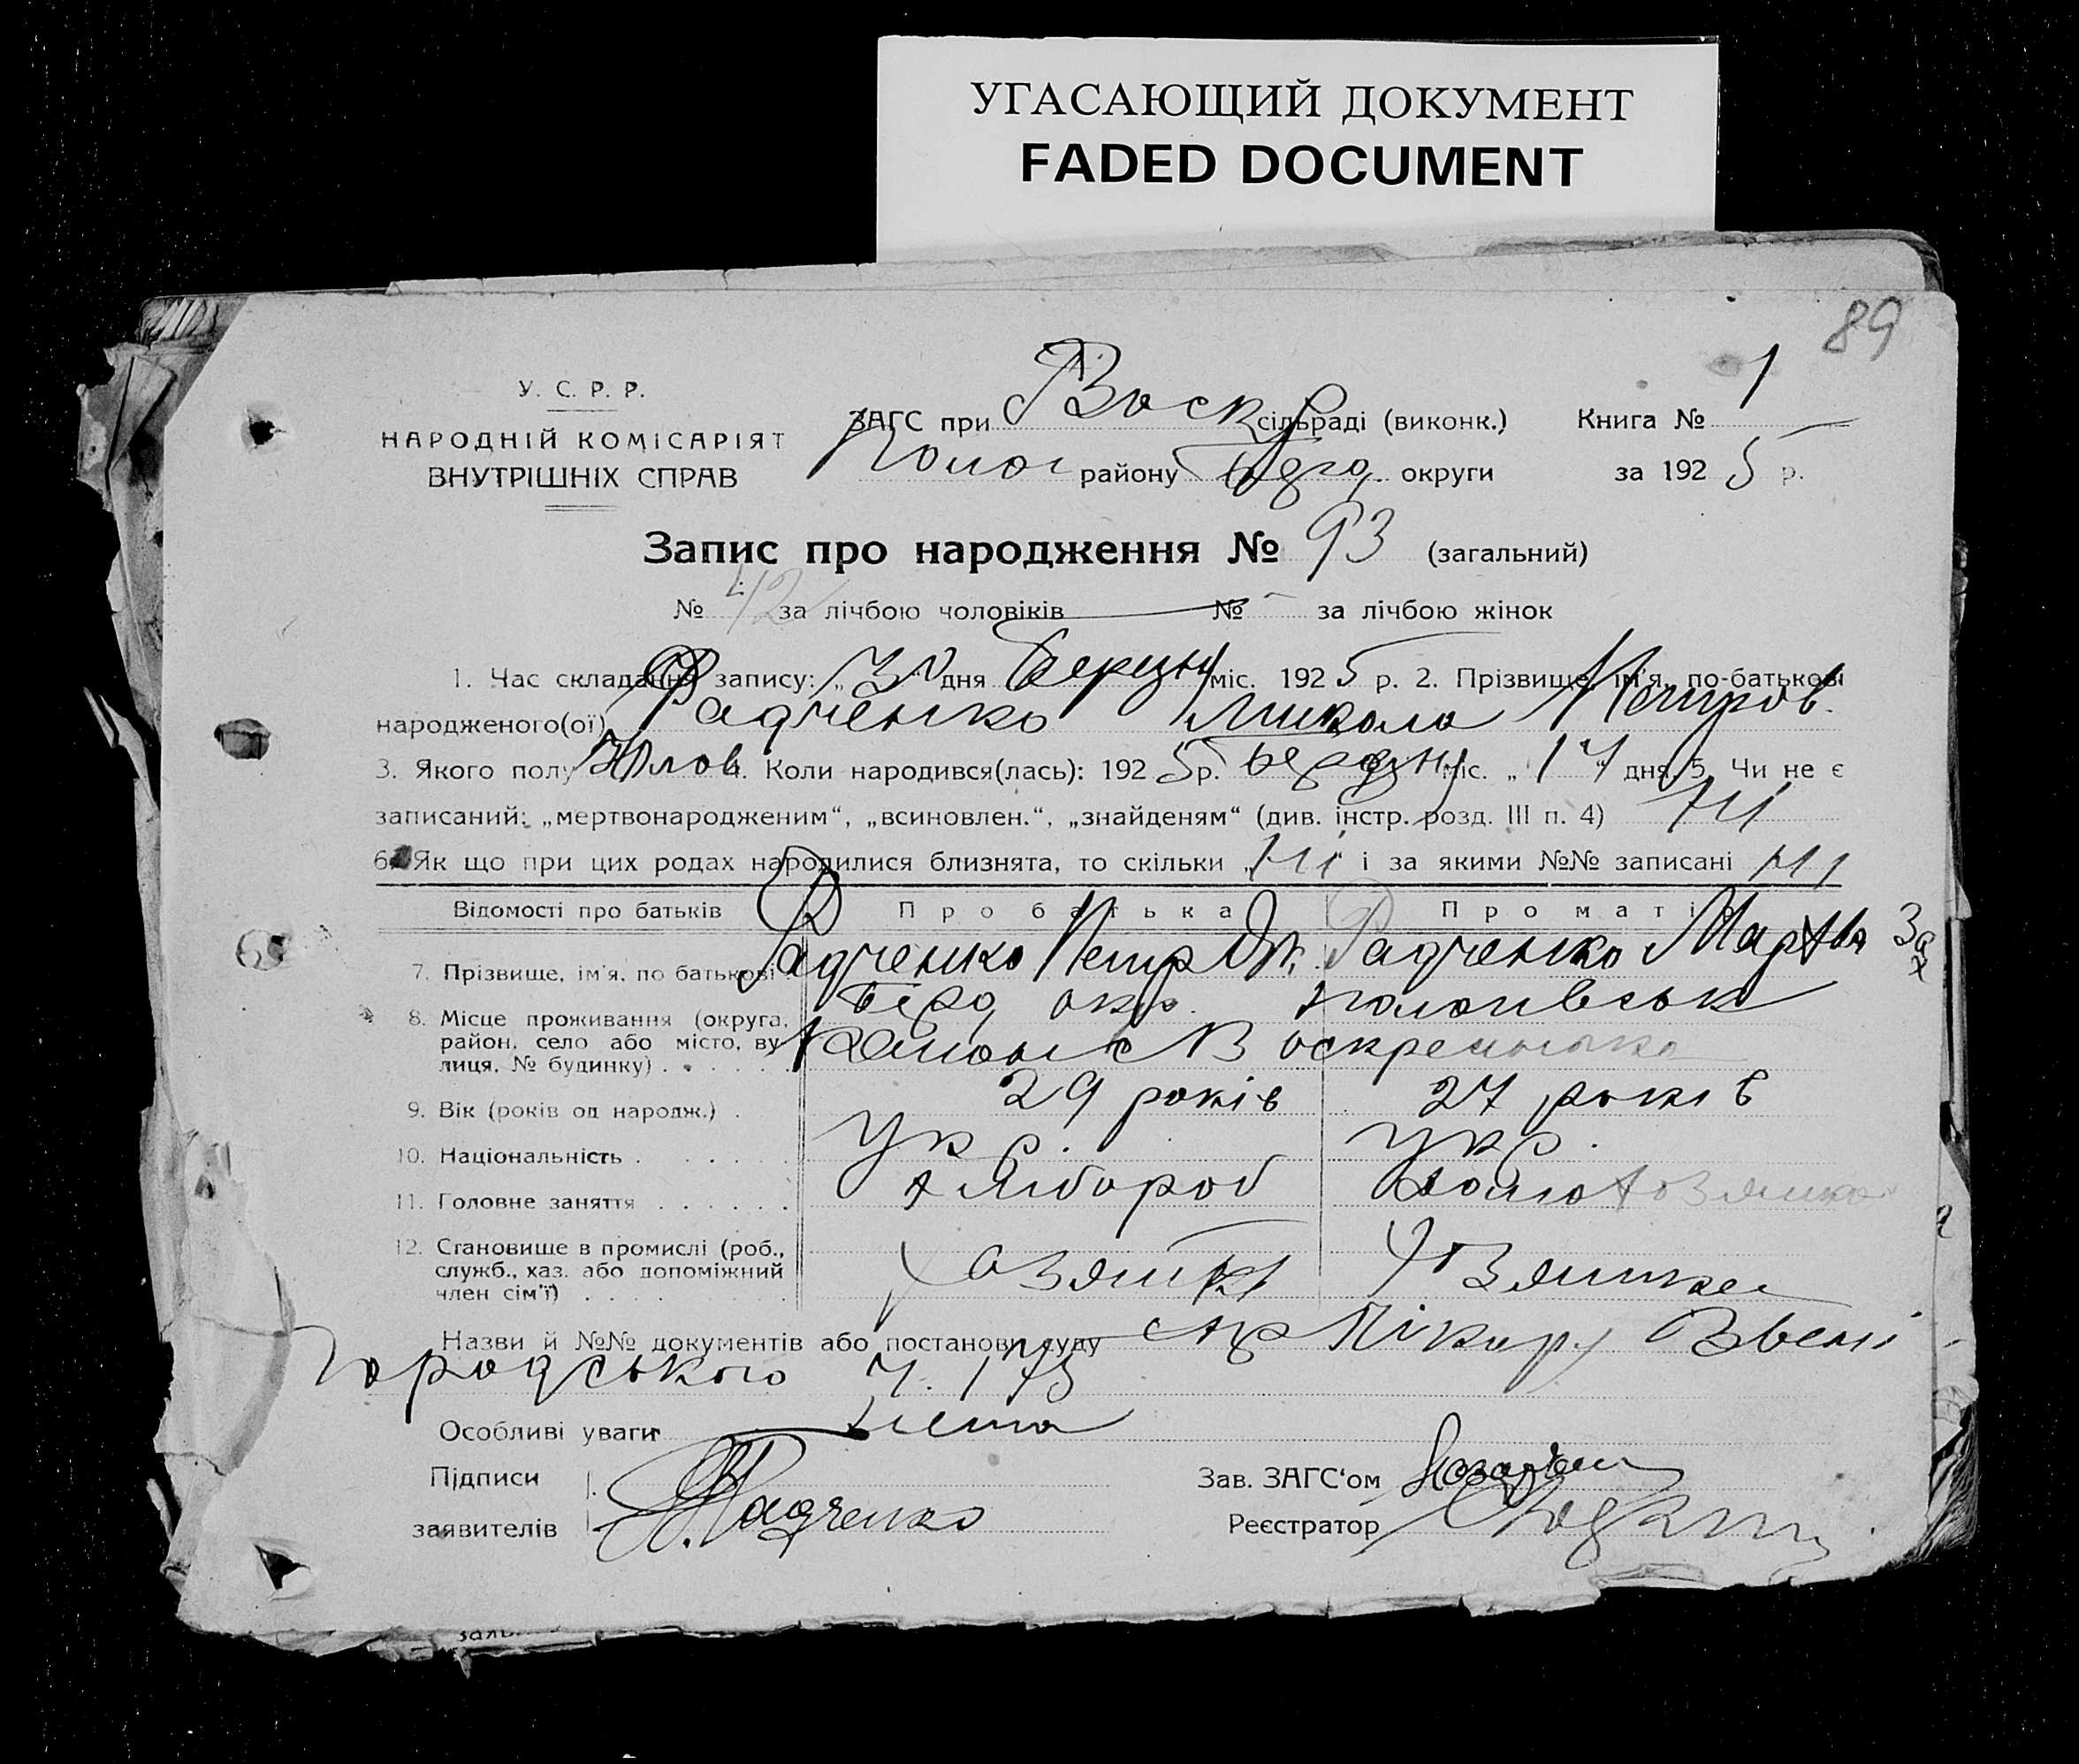 УГАСАЮЩИЙ ДОКУМЕНТ
FADED DOCUMENT
89
У. С. Р. Р.
НАРОДНІЙ КОМІСАРІЯТ
ВНУТРІШНІХ СПРАВ
ЗАГС при Воскр сільраді (виконк.)
Полог району Берд. округи
Книга № 1
за 1925 р.
Запис про народження № 93 (загальний)
№ 42 за лічбою чоловіків № - за лічбою жінок
1. Час складання запису: „30“ дня Березня міс. 1925 р. 2. Прізвище, ім'я, по-батькові
народженого(ої) Радченко Микола Петров.
3. Якого полу Чолов 4. Коли народився(лась): 1925 р. Березня міс. „17“ дня. 5. Чи не є
записаний: „мертвонародженим“, „всиновлен.“, „знайденям“ (див. інстр. розд. III п. 4) ні
6. Як що при цих родах народилися близнята, то скільки „ні“ і за якими №№ записані ні
Відомості про батьків Про батька Про матір
7. Прізвище, ім'я, по батькові Радченко Петр Радченко Марфа Зах
8. Місце проживання (округа, район, село або місто, вулиця, № будинку) Берд окр. Пологівськ
Району с Воскресенька
9. Вік (років од народж.) 29 років 27 років
10. Національність Укр. Укр.
11. Головне заняття хлібороб домохозяйка
12. Становище в промислі (роб., служб., хаз. або допоміжний член сім'ї) хозяин хозяйка
Назви й №№ документів або постанови суду
городського ч. 173
Особливі уваги нема
Підписи
заявителів Радченко
Зав. ЗАГС'ом
Реєстратор